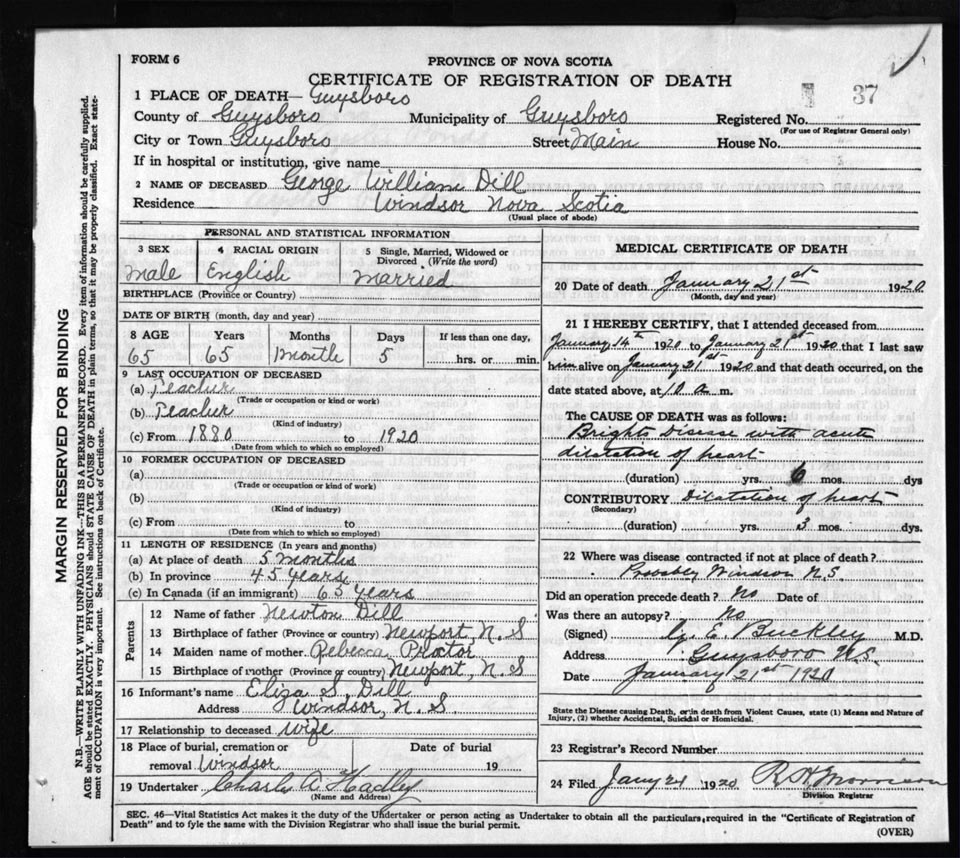 FORM 6
PROVINCE OF NOVA SCOTIA
CERTIFICATE OF REGISTRATION OF DEATH
37
1 PLACE OF DEATH— Guysboro
County of Guysboro Municipality of Guysboro Registered No.
(For use of Registrar General only)
City or Town Guysboro Street Main House No.
If in hospital or institution, give name
2 NAME OF DECEASED George William Dill
Residence Windsor Nova Scotia
(Usual place of abode)
PERSONAL AND STATISTICAL INFORMATION
3 SEX 4 RACIAL ORIGIN 5 Single, Married, Widowed or
Divorced (Write the word)
Male English Married
BIRTHPLACE (Province or Country)
DATE OF BIRTH (month, day and year)
8 AGE Years Months Days If less than one day,
65 65 Month 5 hrs. or min.
9 LAST OCCUPATION OF DECEASED
(a) Peacher
(Trade or occupation or kind or work)
(b) Peacher
(Kind of industry)
(c) From 1880 to 1920
(Date from which to which so employed)
10 FORMER OCCUPATION OF DECEASED
(a)
(Trade or occupation or kind of work)
(b)
(Kind of industry)
(c) From to
(Date from which to which so employed)
11 LENGTH OF RESIDENCE (In years and months)
(a) At place of death 5 months
(b) In province 45 years
(c) In Canada (if an immigrant) 65 years
Parents
12 Name of father Newton Dill
13 Birthplace of father (Province or country) Newport, N. S
14 Maiden name of mother Rebecca Proctor
15 Birthplace of mother (Province or country) Newport, N. S
16 Informant's name Eliza S. Dill
Address Windsor, N. S.
17 Relationship to deceased Wife
18 Place of burial, cremation or Date of burial
removal Windsor 19
19 Undertaker Charles A Hadley
(Name and Address)
MEDICAL CERTIFICATE OF DEATH
20 Date of death January 21st 1920
(Month, day and year)
21 I HEREBY CERTIFY, that I attended deceased from
January 14th 1920 to January 21st 1920 that I last saw
him alive on January 21st 1920 and that death occurred, on the
date stated above, at 10 a m.
The CAUSE OF DEATH was as follows:
Brights Disease with acute
dilatation of heart
(duration) yrs. 6 mos. dys
CONTRIBUTORY Dilatation of heart
(Secondary)
(duration) yrs. 3 mos. dys.
22 Where was disease contracted if not at place of death?
Probably Windsor N.S.
Did an operation precede death? No Date of
Was there an autopsy? No
(Signed) G. E. Buckley M.D.
Address Guysboro N.S.
Date January 21st 1920
State the Disease causing Death, or in death from Violent Causes, state (1) Means and Nature of
Injury, (2) whether Accidental, Suicidal or Homicidal.
23 Registrar's Record Number
24 Filed Jany 21 1920 R H Morrison
Division Registrar
SEC. 46—Vital Statistics Act makes it the duty of the Undertaker or person acting as Undertaker to obtain all the particulars required in the "Certificate of Registration of
Death" and to fyle the same with the Division Registrar who shall issue the burial permit.
(OVER)
MARGIN RESERVED FOR BINDING
N.B.—WRITE PLAINLY WITH UNFADING INK—THIS IS A PERMANENT RECORD. Every item of information should be carefully supplied.
AGE should be stated EXACTLY. PHYSICIANS should STATE CAUSE OF DEATH in plain terms, so that it may be properly classified. Exact state-
ment of OCCUPATION is very important. See instructions on back of Certificate.